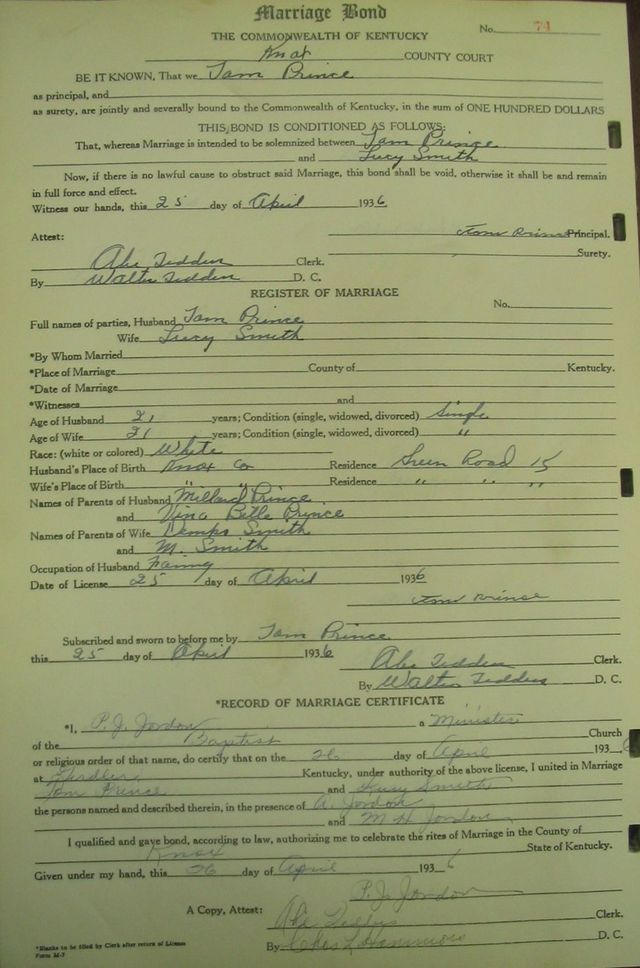 Marriage Bond
No. 74
THE COMMONWEALTH OF KENTUCKY
Knox COUNTY COURT
BE IT KNOWN, That we Tom Prince
as principal, and
as surety, are jointly and severally bound to the Commonwealth of Kentucky, in the sum of ONE HUNDRED DOLLARS
THIS BOND IS CONDITIONED AS FOLLOWS:
That, whereas Marriage is intended to be solemnized between Tom Prince
and Lucy Smith
Now, if there is no lawful cause to obstruct said Marriage, this bond shall be void, otherwise it shall be and remain
in full force and effect.
Witness our hands, this 25 day of April 1936
Tom Prince Principal.
Attest: Surety.
Abe Tedders Clerk.
By Walter Tedders D. C.
REGISTER OF MARRIAGE
No.
Full names of parties, Husband Tom Prince
Wife Lucy Smith
*By Whom Married
*Place of Marriage County of Kentucky.
*Date of Marriage
*Witnesses and
Age of Husband 21 years; Condition (single, widowed, divorced) Single
Age of Wife 21 years; Condition (single, widowed, divorced) "
Race: (white or colored) White
Husband's Place of Birth Knox Co Residence Green Road 15
Wife's Place of Birth " " Residence " " "
Names of Parents of Husband Millard Prince
and Vina Belle Prince
Names of Parents of Wife Smith
and M. Smith
Occupation of Husband
Date of License 25 day of April 1936
Tom Prince
Subscribed and sworn to before me by Tom Prince
this 25 day of April 1936
Abe Tedders Clerk.
By Walter Tedders D. C.
*RECORD OF MARRIAGE CERTIFICATE
*I, P. J. Jordon a Minister
of the Baptist Church
or religious order of that name, do certify that on the 26 day of April 1936
at Hindler Kentucky, under authority of the above license, I united in Marriage
Tom Prince and Lucy Smith
the persons named and described therein, in the presence of A. Jordon
and M H Jordon
I qualified and gave bond, according to law, authorizing me to celebrate the rites of Marriage in the County of
Knox State of Kentucky.
Given under my hand, this 26 day of April 1936
P. J. Jordon
A Copy, Attest: Abe Tedders Clerk.
*Blanks to be filled by Clerk after return of License
Form M-7 By Chas D. C.